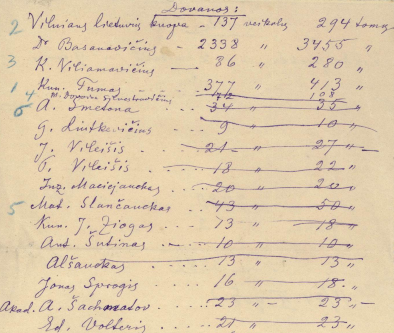 Dovanos:
2 Vilniaus lietuvių kuopa - 137 veikalų 294 tomų
Dr Basanavičius - 2338 " 3455 "
3 K. Viliamovičius - 86 " 280 "
1 Kun. Tumas 377 " 413 "
4 M. Davoina Silvestravičius 108
6 A. Smetona 34 " 35 "
G. Liutkevičius 9 " 10 "
J. Vileišis 21 " 27 "
P. Vileišis 18 " 22 "
Inž. Maciejauskas 20 " 20 "
5 Mat. Slančauckas 43 " 50 "
Kun. J. Žiogas 13 " 18 "
Ant. Šutinas 10 " 10 "
Alšauskas 13 " 13 "
Jonas Sprogis 16 " 18 "
Akad. A. Šachmatov 23 " 23 "
Ed. Volteris 21 " 23 "